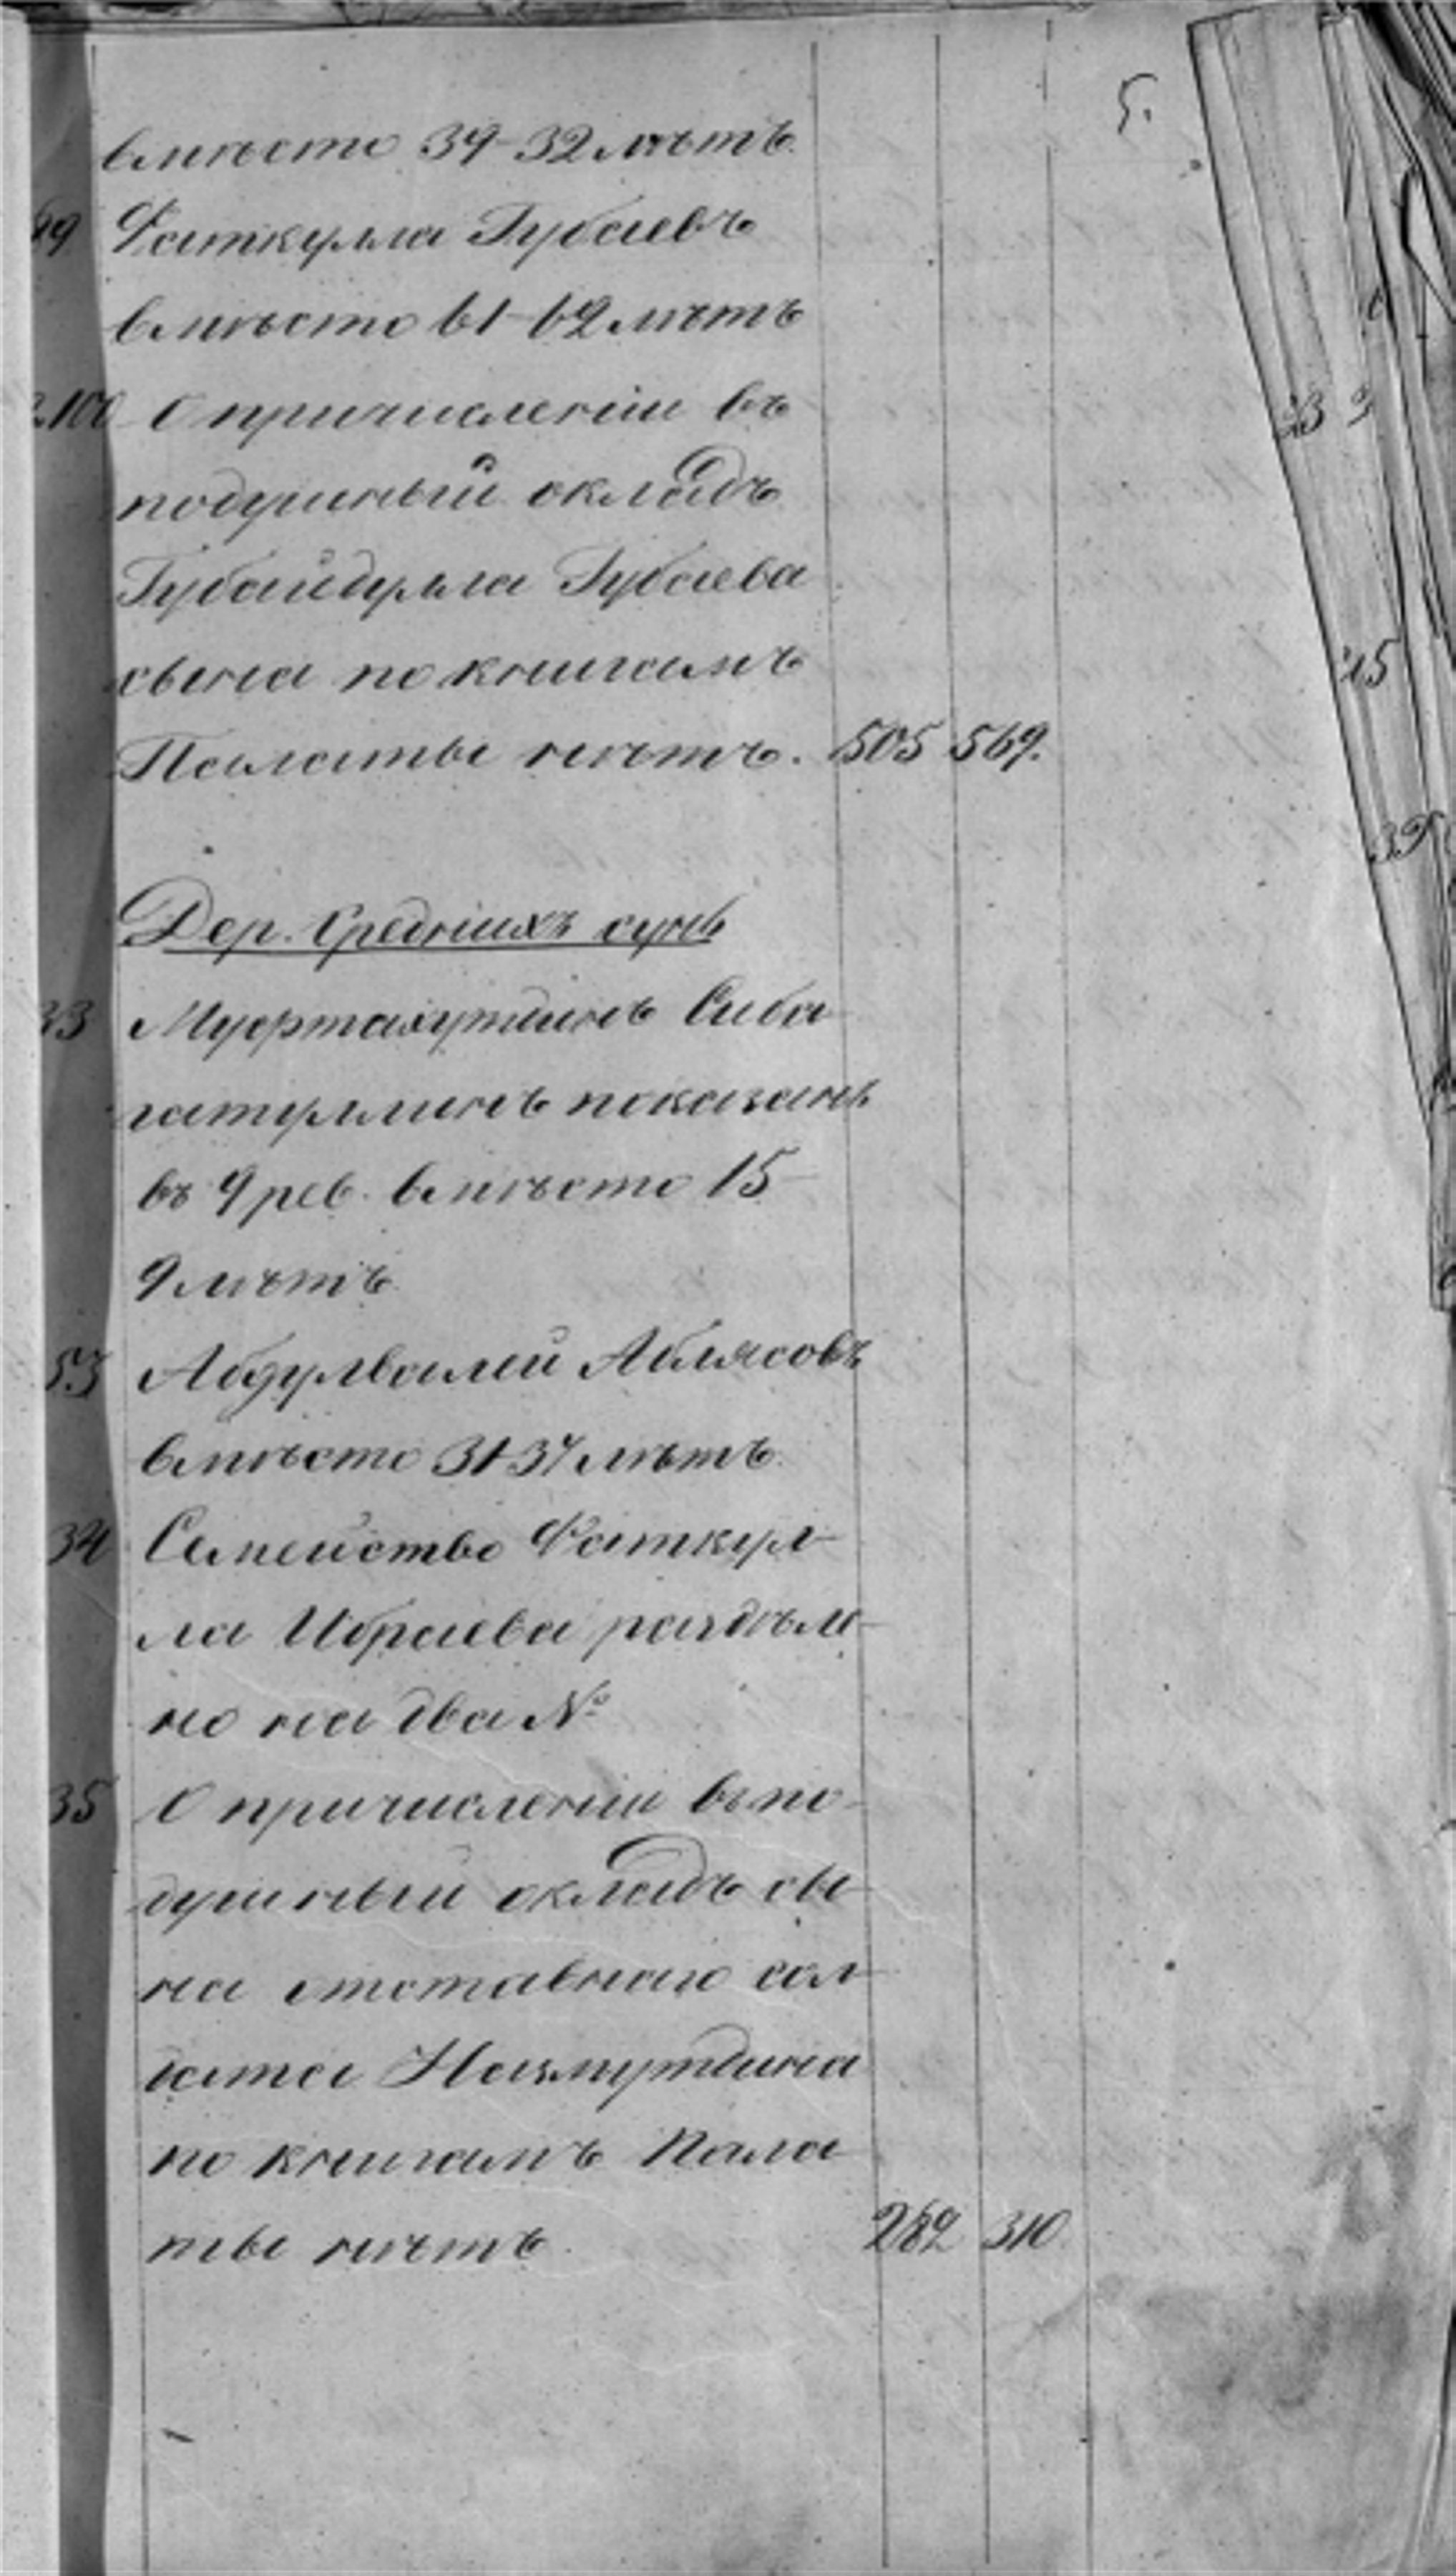 5.
вмѣсто 39-32 лѣтъ.
Фаткулла Губаевъ
вмѣсто 61-62 лѣтъ
О причисленіи въ
подушный окладъ
Губайдулла Губаева
сына по книгамъ
Палаты нѣтъ. 505 569.
Дер. Среднихъ сунъ
33 Муфтахутдинъ Сиба
гатуллинъ показанъ
въ 9 рев. вмѣсто 15-
9 лѣтъ.
53 Абдулвалей Аблясовъ
вмѣсто 31-37 лѣтъ.
34 Семейство Фаткул-
ла Ибраева раздѣле-
но на два №
35 О причисленіи въ по-
душный окладъ сы-
на отставнаго сол-
дата Назмутдина
по книгамъ Пала-
ты нѣтъ. 282 310